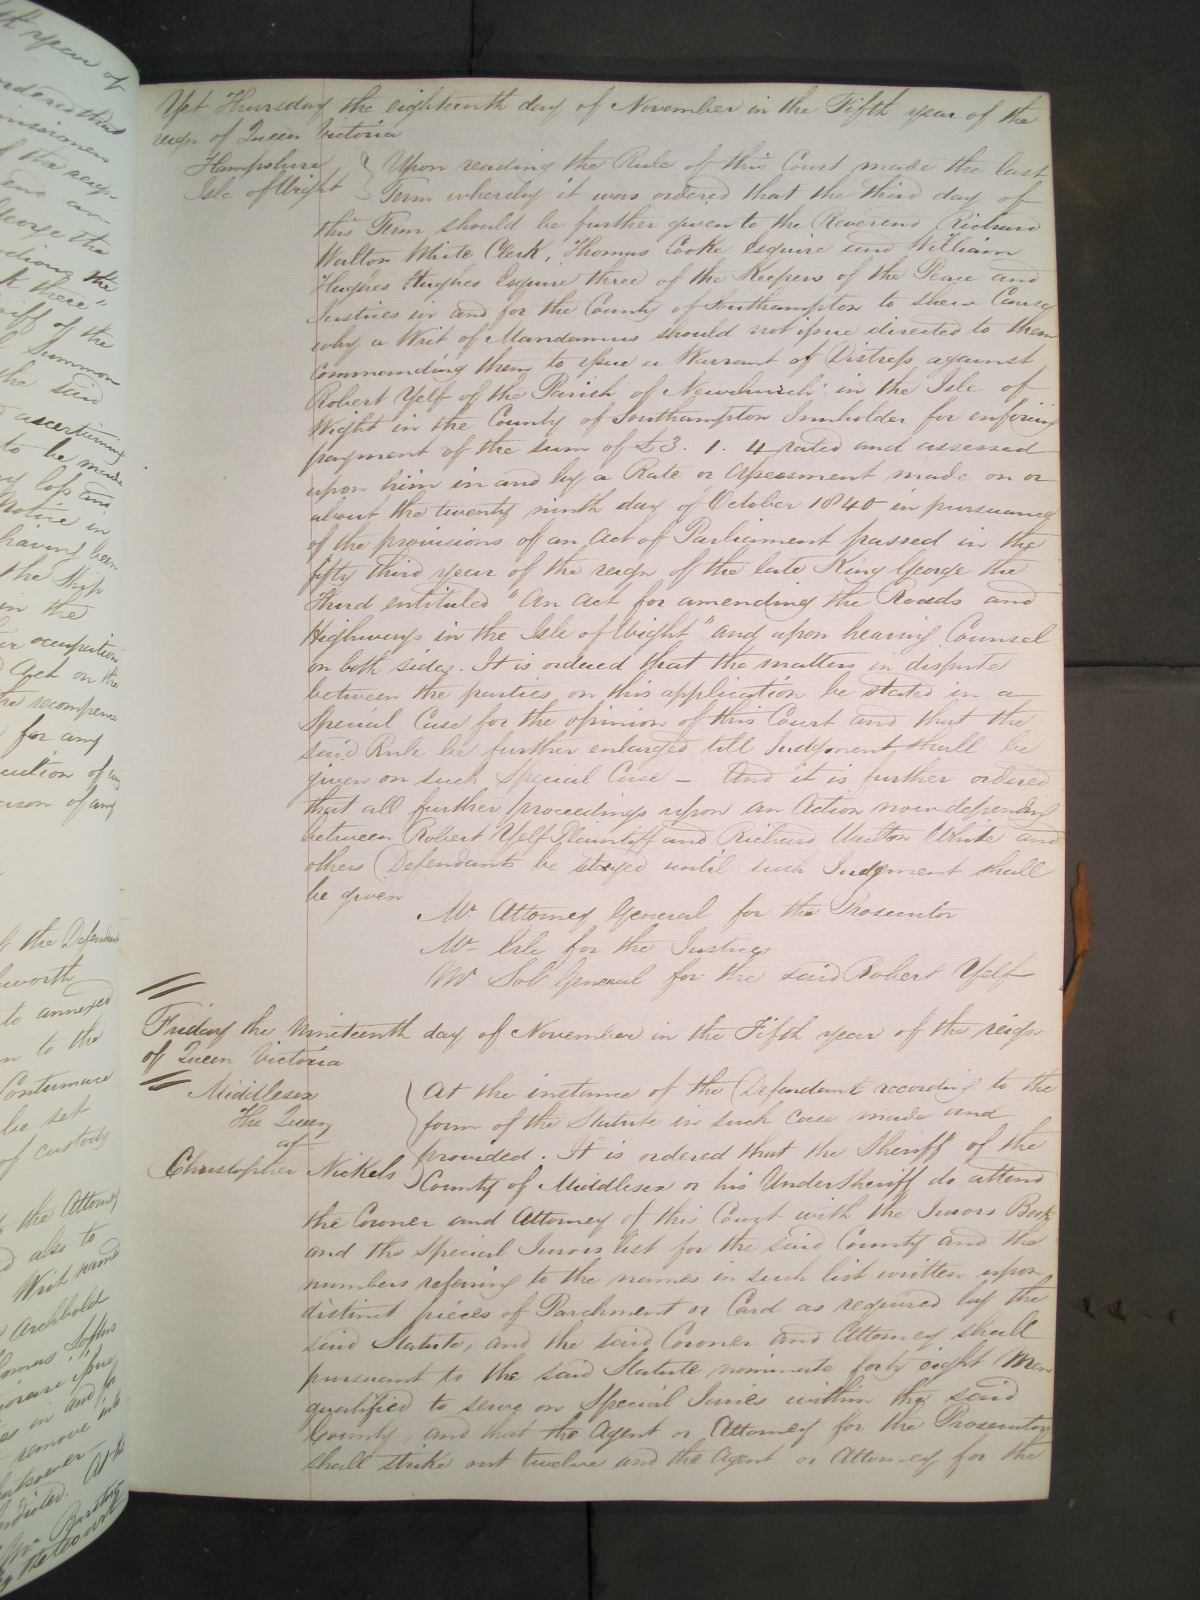 Yet Thursday the eighteenth day of November in the Fifth year of the
reign of Queen Victoria
Hampshire
Isle of Wight
Upon reading the Rule of this Court made the last
Term whereby it was ordered that the third day of
this Term should be further given to the Reverend Richard
Walton White Clerk, Thomas Cooke Esquire and William
Hughes Hughes Esquire three of the Keepers of the Peace and
Justices in and for the County of Southampton to shew Cause
why a Writ of Mandamus should not issue directed to them
commanding them to issue a Warrant of Distress against
Robert Yelf of the Parish of Newchurch in the Isle of
Wight in the County of Southampton Innholder for enforcing
payment of the sum of £3. 1. 4 rated and assessed
upon him in and by a Rate or Assessment made on or
about the twenty ninth day of October 1840 in pursuance
of the provisions of an Act of Parliament passed in the
fifty third year of the reign of the late King George the
Third entituled "An Act for amending the Roads and
Highways in the Isle of Wight" and upon hearing Counsel
on both sides. It is ordered that the matters in dispute
between the parties on this application be stated in a
Special Case for the opinion of this Court and that the
said Rule be further enlarged till Judgment shall be
given on such Special Case — And it is further ordered
that all further proceedings upon an Action now depending
between Robert Yelf Plaintiff and Richard Walton White and
others Defendants be stayed until such Judgment shall
be given
Mr Attorney General for the Prosecutor
Mr Erle for the Justices
Mr Solr General for the said Robert Yelf
Friday the Nineteenth day of November in the Fifth year of the reign
of Queen Victoria
Middlesex
The Queen
agt
Christopher Nickels
At the instance of the Defendant according to the
form of the Statute in such case made and
provided. It is ordered that the Sheriff of the
County of Middlesex or his UnderSheriff do attend
the Coroner and Attorney of this Court with the Jurors Book
and the Special Jurors list for the said County and the
numbers referring to the names in such list written upon
distinct pieces of Parchment or Card as required by the
said Statute, and the said Coroner and Attorney shall
pursuant to the said Statute nominate forty eight Men
qualified to serve on Special Juries within the said
County, and that the Agent or Attorney for the Prosecutor
shall strike out twelve and the Agent or Attorney for the